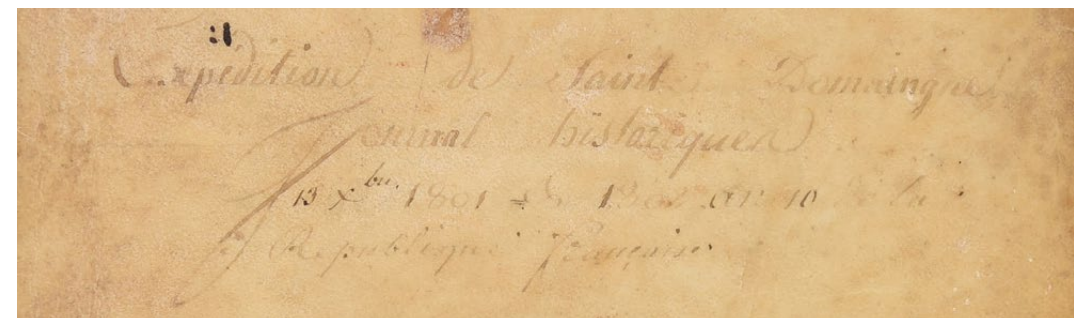 Expédition de Saint Domaingue
Journal historique
13 Xbre 1801 1802 an 10 de la
Republique française